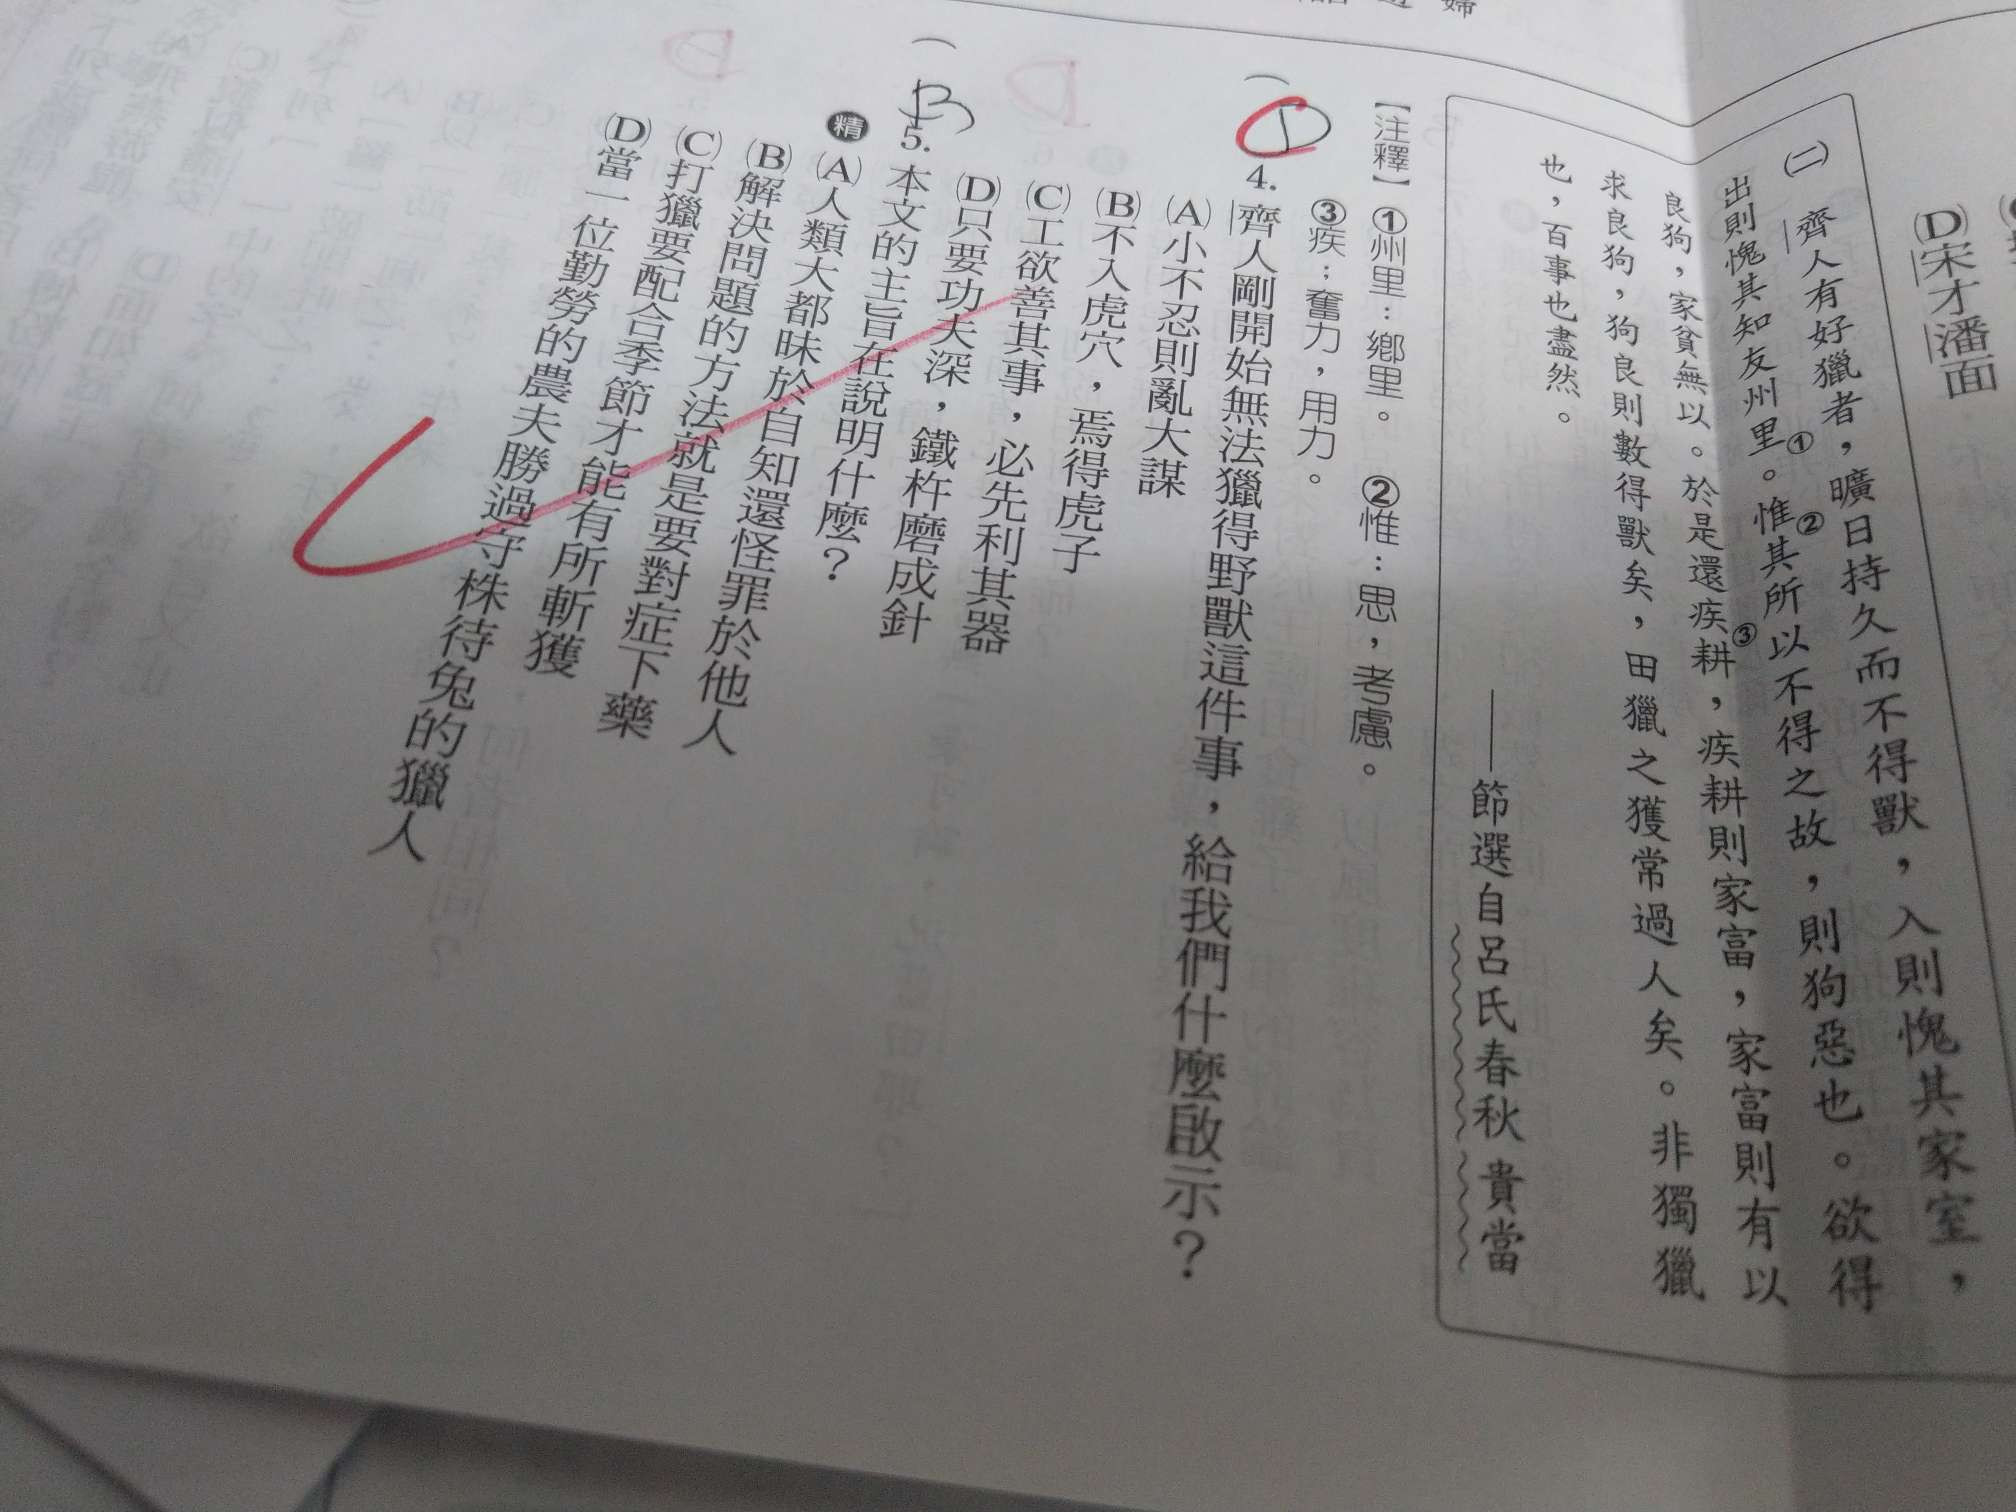 (D)宋才潘面
㈡ 齊人有好獵者，曠日持久而不得獸，入則愧其家室，
出則愧其知友州里①。惟②其所以不得之故，則狗惡也。欲得
良狗，家貧無以。於是還疾③耕，疾耕則家富，家富則有以
求良狗，狗良則數得獸矣，田獵之獲常過人矣。非獨獵
也，百事也盡然。
——節選自呂氏春秋 貴當
【注釋】①州里：鄉里。 ②惟：思，考慮。
③疾：奮力，用力。
（D 4. 齊人剛開始無法獵得野獸這件事，給我們什麼啟示？
(A)小不忍則亂大謀
(B)不入虎穴，焉得虎子
(C)工欲善其事，必先利其器
(D)只要功夫深，鐵杵磨成針
（B 5. 本文的主旨在說明什麼？
精 (A)人類大都昧於自知還怪罪於他人
(B)解決問題的方法就是要對症下藥
(C)打獵要配合季節才能有所斬獲
(D)當一位勤勞的農夫勝過守株待兔的獵人